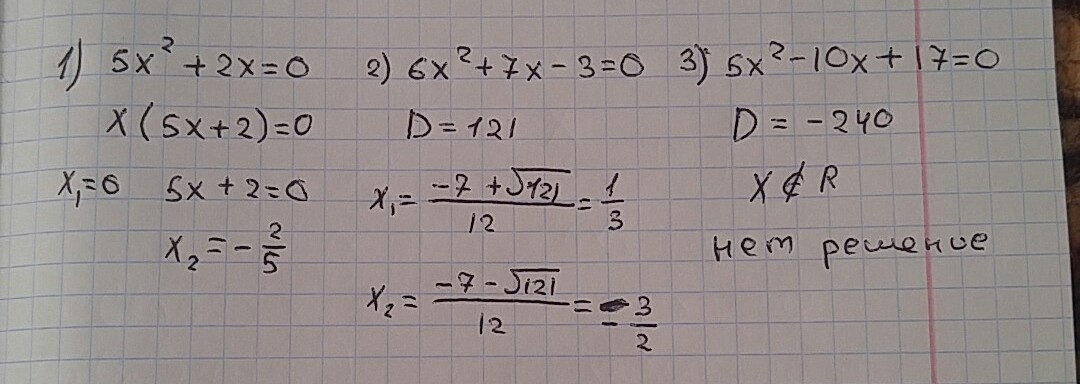 1) 5x² + 2x = 0
x(5x+2)=0
x₁=0 5x+2=0
x₂ = -2/5
2) 6x²+7x-3=0
D=121
x₁= (-7+√121)/12 = 1/3
x₂= (-7-√121)/12 = -3/2
3) 5x²-10x+17=0
D = -240
x ∉ R
нет решение